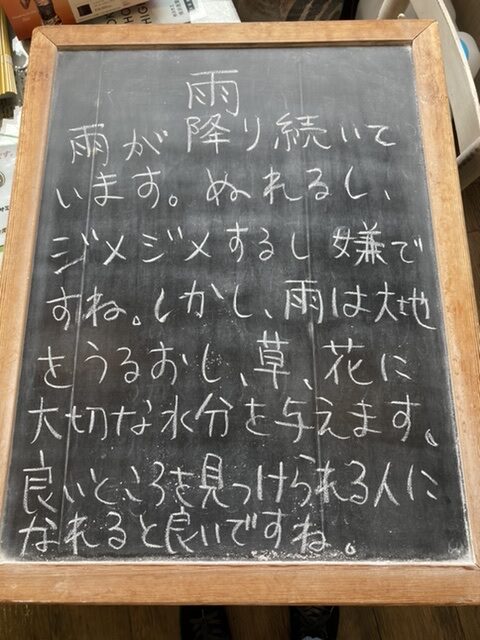 雨
雨が降り続いて
います。ぬれるし、
ジメジメするし嫌で
すね。しかし、雨は大地
をうるおし、草、花に
大切な水分を与えます。
良いところを見つけられる人に
なれると良いですね。